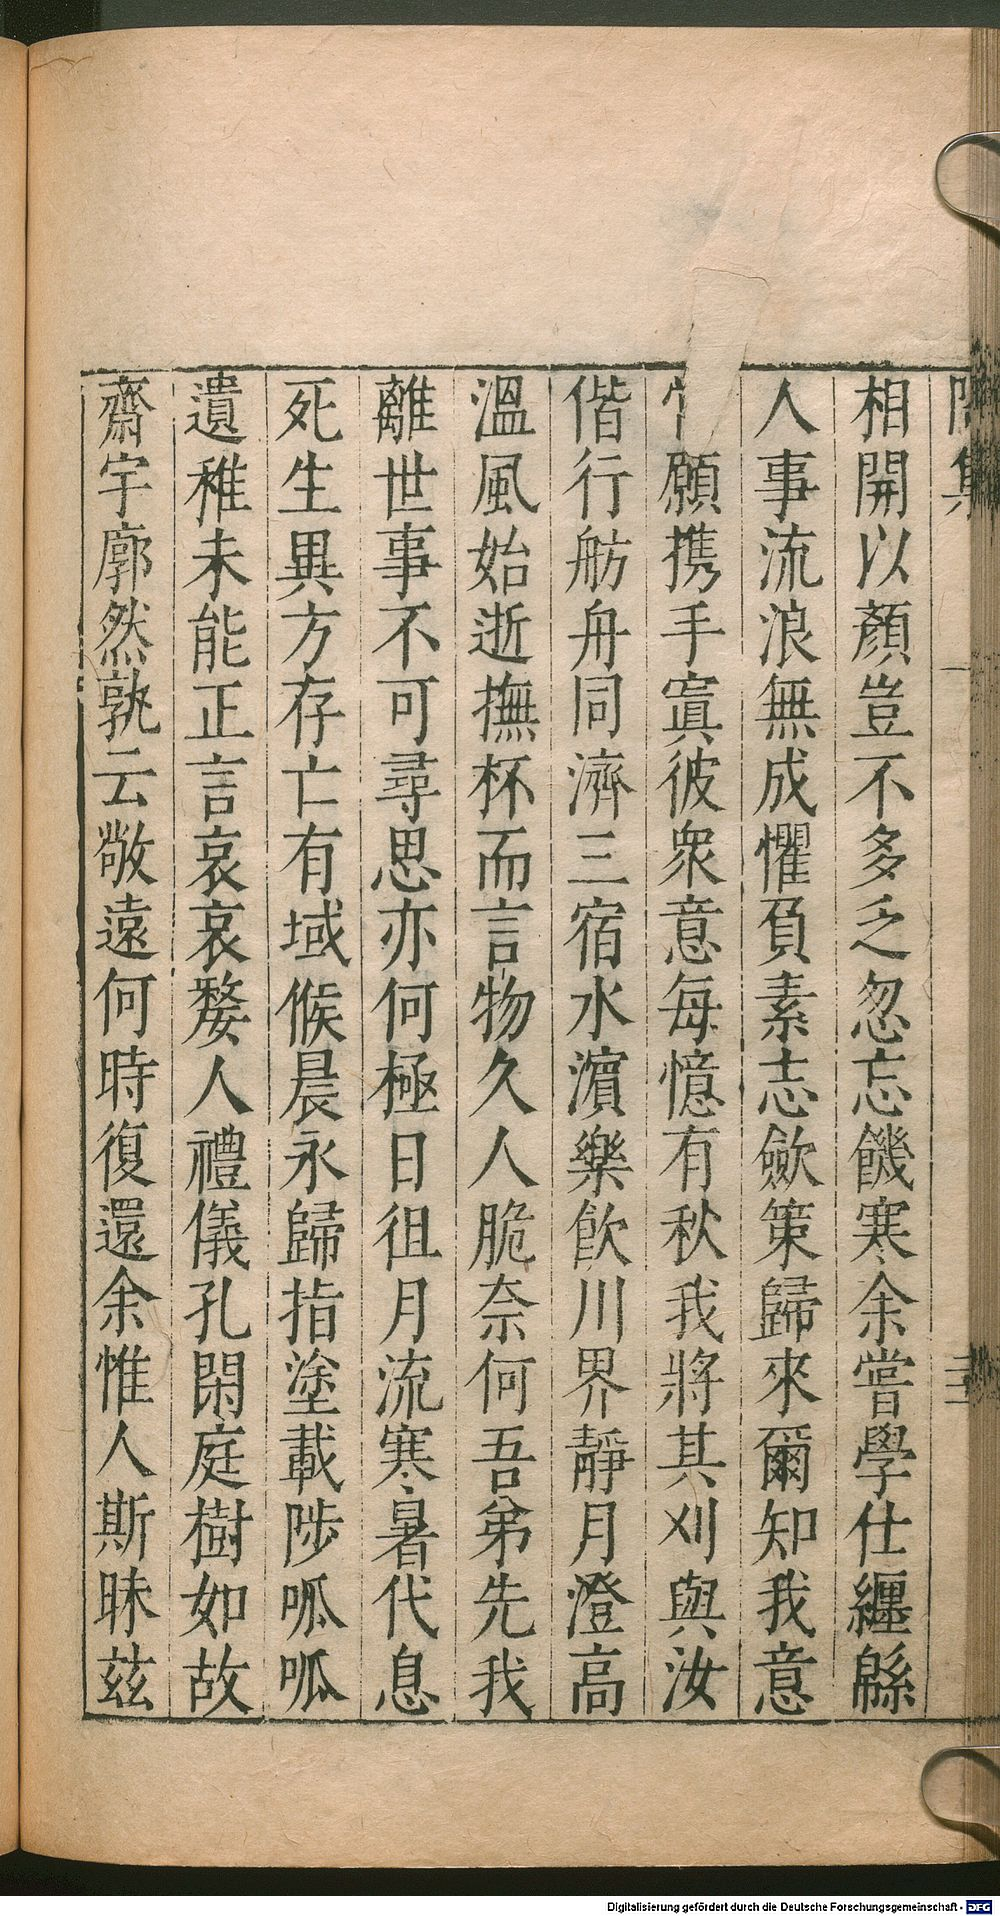 相開以顏豈不多乏忽忘饑寒余嘗學仕纏緜
人事流浪無成懼負素志斂策歸來爾知我意
願携手寘彼衆意每憶有秋我將其刈與汝
偕行舫舟同濟三宿水濵樂飲川界靜月澄高
溫風始逝撫杯而言物久人脆奈何吾弟先我
離世事不可尋思亦何極日徂月流寒暑代息
死生異方存亡有域候晨永歸指塗載陟呱呱
遺稚未能正言哀哀嫠人禮儀孔閑庭樹如故
齋宇廓然孰云敬遠何時復還余惟人斯昧茲
Digitalisierung gefördert durch die Deutsche Forschungsgemeinschaft - DFG